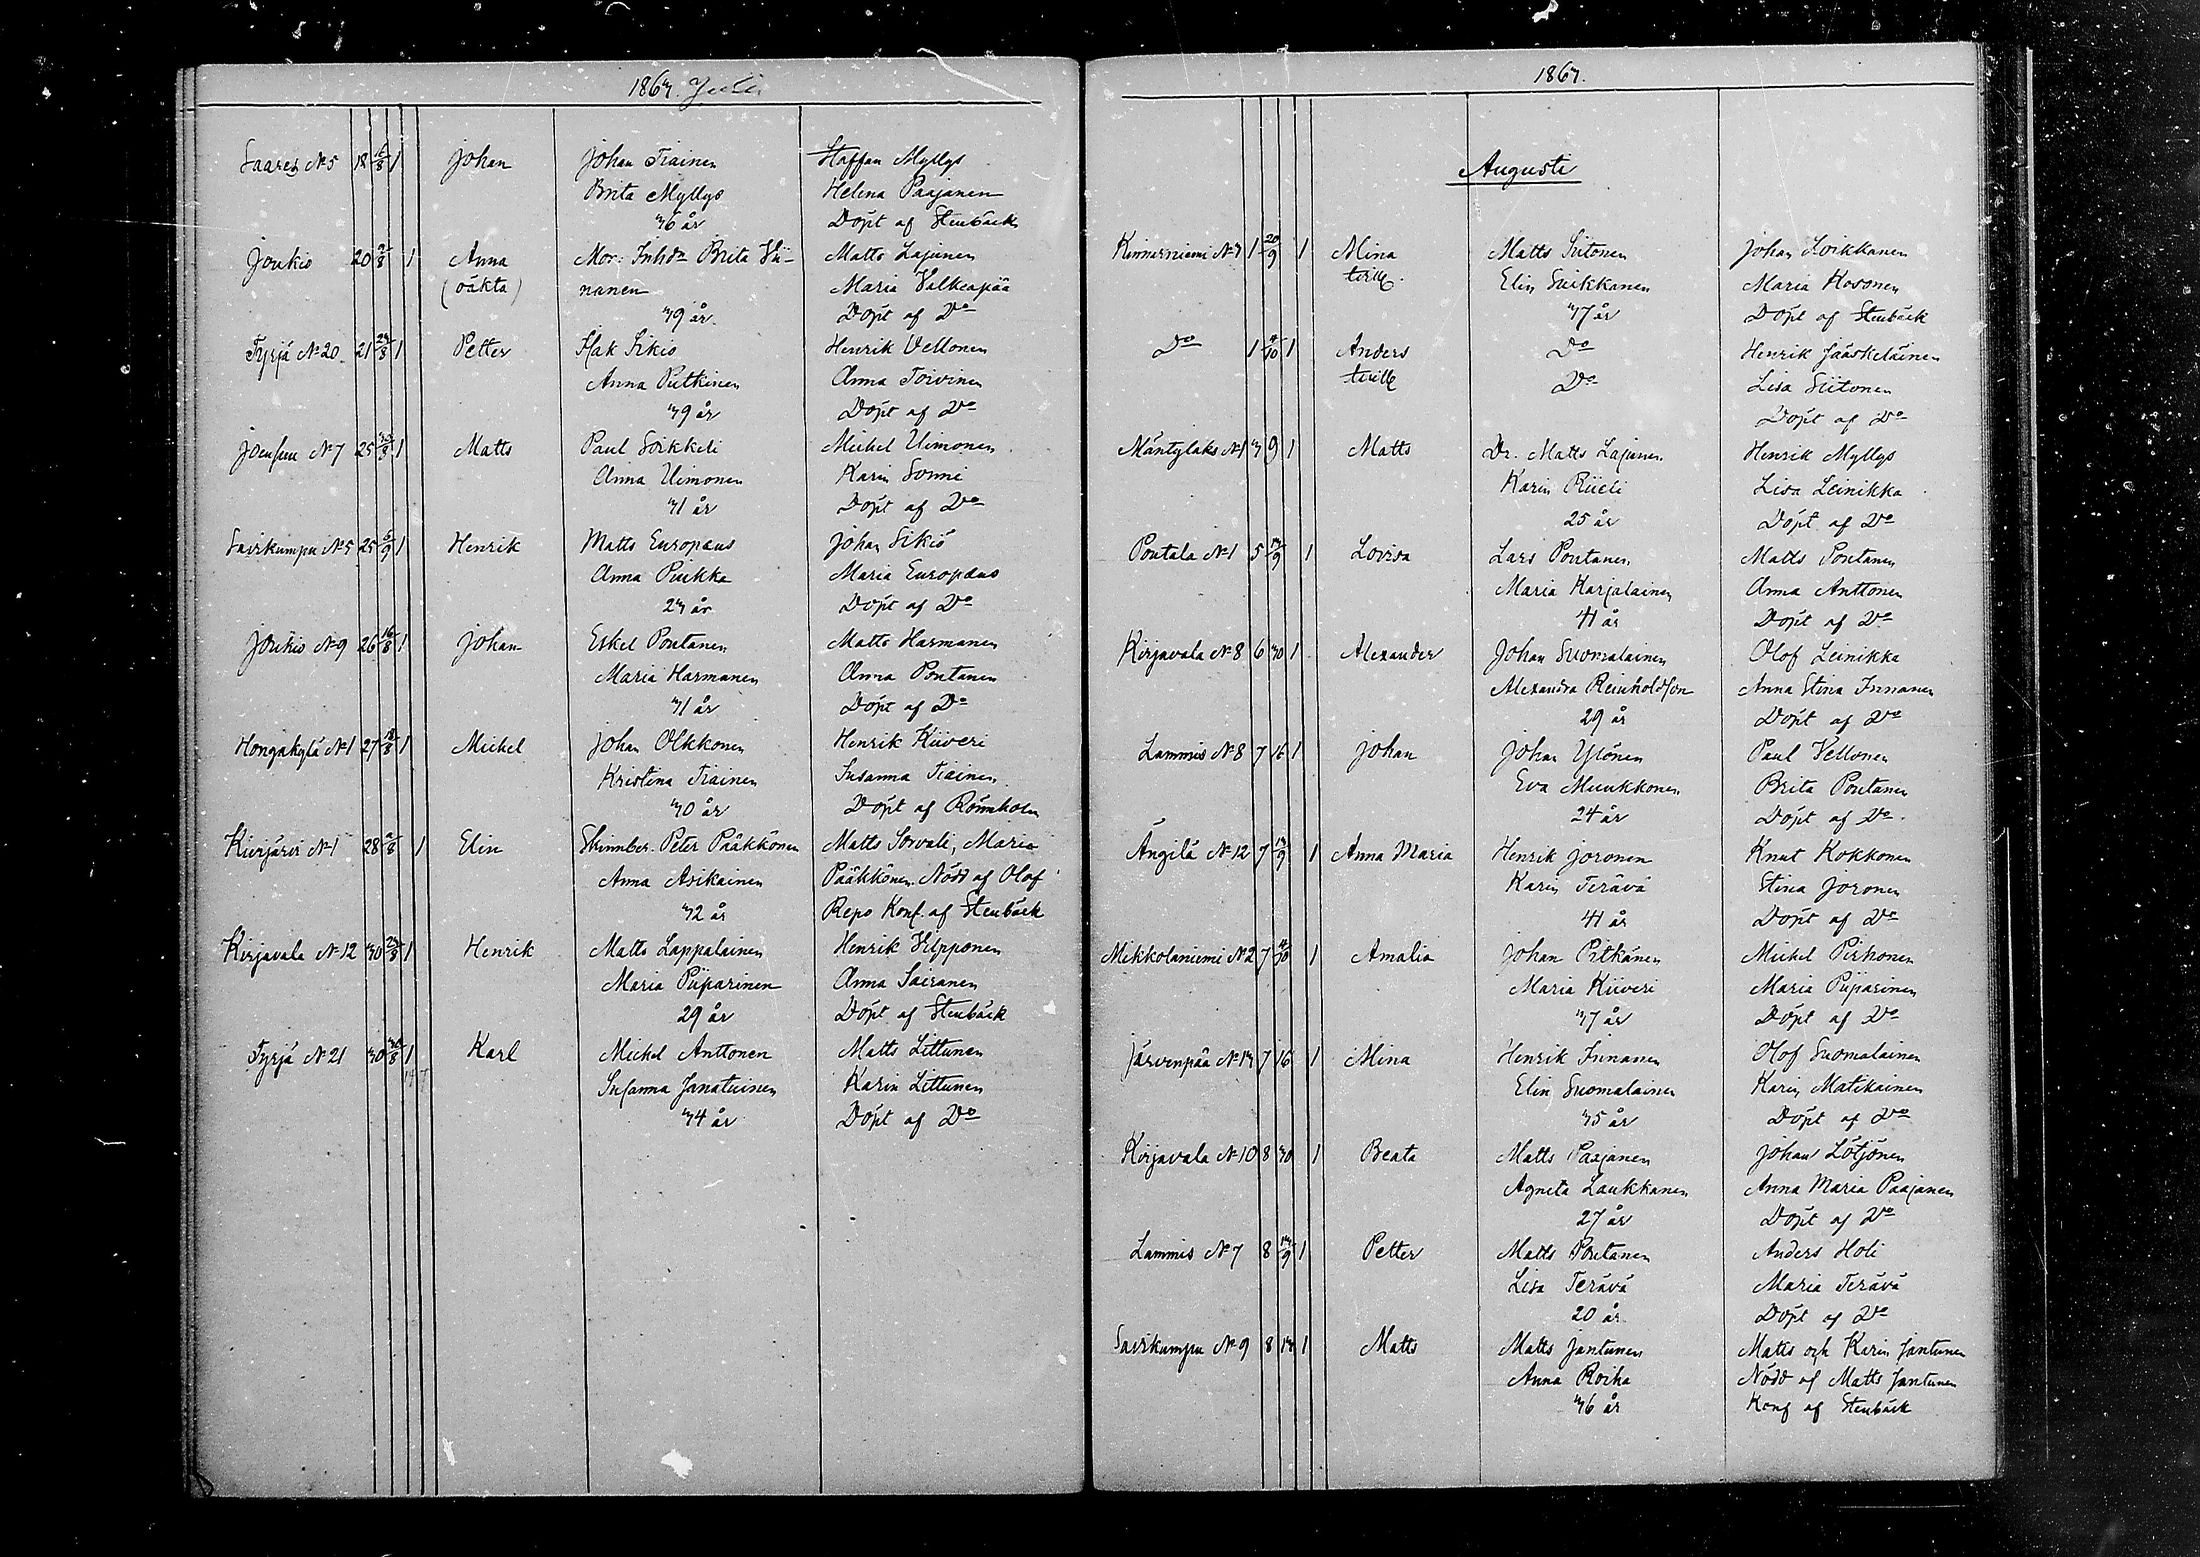 1863. Juli
Saares No 5 18 6/8 1 Johan Johan Tiainen Staffan Myllys
Brita Myllys Helena Paajanen
36 år Döpt af Stenbäck
Joukio 20 9/8 1 Anna Mor: Inhda Brita Vii- Matts Lajunen
(oäkta) nanen Maria Valkeapää
39 år Döpt af Do
Tyrjä No 20 21 23/8 1 Petter Isak Sikiö Henrik Vellonen
Anna Putkinen Anna Toivinen
39 år Döpt af Do
Joensuu No 7 25 30/8 1 Matts Paul Soikkeli Michel Uimonen
Anna Uimonen Karin Sonni
31 år Döpt af Do
Savikumpu No 5 25 6/9 1 Henrik Matts Europaeus Johan Sikiö
Anna Puikka Maria Europaeus
23 år Döpt af Do
Joukio No 9 26 16/8 1 Johan Eskel Pontanen Matts Harmanen
Maria Harmanen Anna Pontanen
31 år Döpt af Do
Hongakylä No 1 27 18/8 1 Michel Johan Olkkonen Henrik Kiiveri
Kristina Tiainen Susanna Tiainen
30 år Döpt af Rönnholm
Kivijärvi No 1 28 9/8 1 Elin Skinnber. Peter Pääkkönen Matts Sorvali, Maria
Anna Asikainen Pääkkönen. Nöd af Olof
32 år Repo Konf. af Stenbäck
Kirjavala No 12 30 23/8 1 Henrik Matts Lappalainen Henrik Vilpponen
Maria Piiparinen Anna Sairanen
29 år Döpt af Stenbäck
Tyrjä No 21 30 30/8 1 Karl Michel Anttonen Matts Littunen
147
Susanna Janatuinen Karin Littunen
34 år Döpt af Do
1863.
Augusti
Kinnarniemi No 3 1 20/9 1 Mina Matts Siitonen Johan Loikkanen
tvill. Elin Suikkanen Maria Kosonen
37 år Döpt af Stenbäck
Do 1 4/10 1 Anders Do Henrik Jääskeläinen
tvill Do Lisa Siitonen
Döpt af Do
Mäntylaks No 1 3 9 1 Matts Dr. Matts Lajunen Henrik Myllys
Karin Riieli Lisa Leinikka
25 år Döpt af Do
Pontala No 1 5 13/9 1 Lovisa Lars Pontanen Matts Pontanen
Maria Karjalainen Anna Anttonen
41 år Döpt af Do
Kirjavala No 8 6 30 1 Alexander Johan Suomalainen Olof Leinikka
Alexandra Reinholdsson Anna Stina Innanen
29 år Döpt af Do
Lammis No 8 7 16 1 Johan Johan Ylönen Paul Vellonen
Eva Muukkonen Brita Pontanen
24 år Döpt af Do.
Ängilä No 12 7 13/9 1 Anna Maria Henrik Joronen Knut Kokkonen
Karin Terävä Stina Joronen
41 år Döpt af Do
Mikkolaniemi No 2 7 4/10 1 Amalia Johan Pitkänen Michel Pirhonen
Maria Kiiveri Maria Piiparinen
37 år Döpt af Do
Järvenpää No 13 7 16 1 Mina Henrik Innanen Olof Suomalainen
Elin Suomalainen Karin Matikainen
35 år Döpt af Do
Kirjavala No 10 8 30 1 Beata Matts Paajanen Johan Lötjönen
Agneta Laukkanen Anna Maria Paajanen
27 år Döpt af Do
Lammis No 7 8 13/9 1 Petter Matts Pontanen Anders Holi
Lisa Terävä Maria Terävä
20 år. Döpt af Do
Savikumpu No 9 8 13 1 Matts Matts Jantunen Matts och Karin Jantunen
Anna Roiha Nödd af Matts Jantunen
36 år Konf af Stenbäck